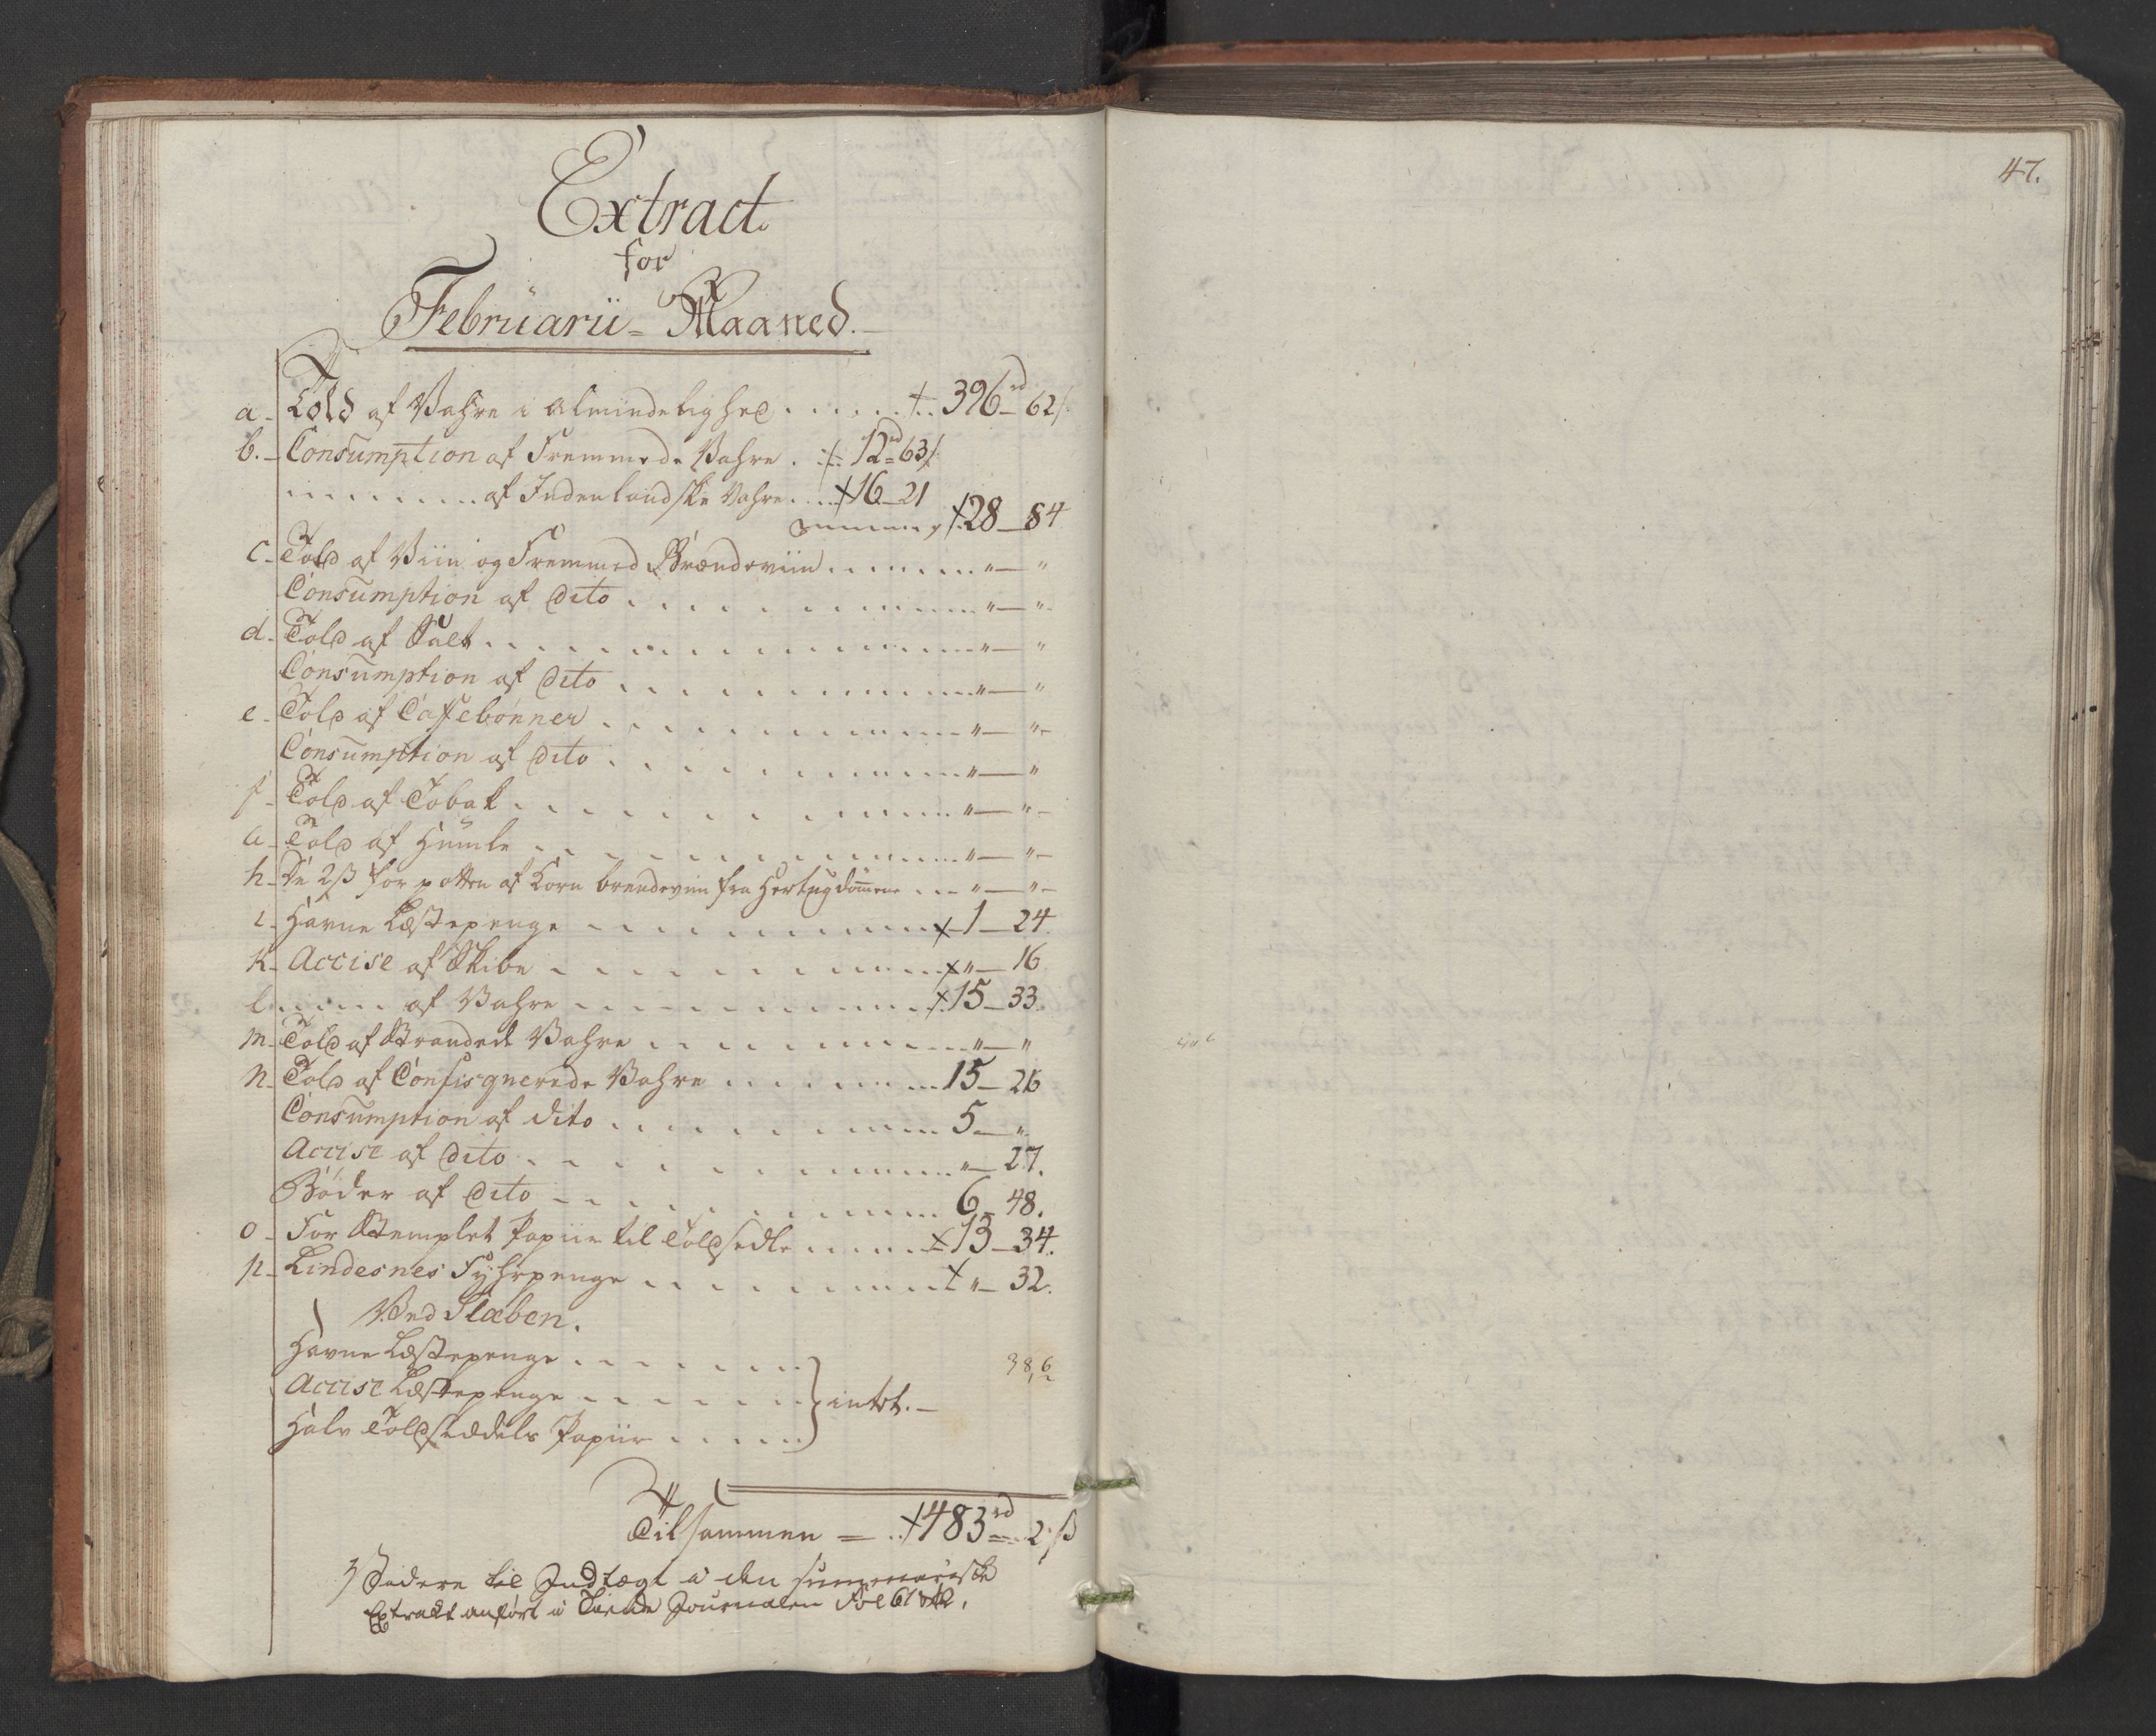 47.
Extract
for
Februarii = Maaned.
a - Told af Vahre i Almindelighed . . . . . . 396 rd - 62 ß
b. - Consumption af Fremmede Vahre . 12 rd = 63 ß
. . . . . . . af Indenlandske Vahre . . . 16 - 21
Summa 28 - 84
c - Told af Viin og Fremmed Brændeviin . . . . . . . . " — "
Consumption af Dito . . . . . . . . " — "
d - Told af Salt . . . . . . . . " — "
Consumption af Dito . . . . . . . . " — "
e - Told af Caffebønner . . . . . . . . " — "
Consumption af Dito . . . . . . . . " — "
f - Told af Tobak . . . . . . . . " — "
G - Told af Humle . . . . . . . . " — "
h - De 2 ß for potten af Korn brendeviin fra Hertugdømene . . . " — "
i - Havne Læstepenge . . . . . . . . 1 - 24.
K - Accise af Skibe . . . . . . . . " — 16
l . . . . . af Vahre . . . . . . . . 15 - 33.
m - Told af Strandede Vahre . . . . . . . . " — "
n - Told af Confisqverede Vahre . . . . . . . . 15 - 26
Consumption af dito . . . . . . . . 5 — "
Accise af Dito . . . . . . . . " — 27.
Bøder af Dito . . . . . . . . 6 - 48.
o - For Stemplet Papiir til Toldsedle . . . . . . 13 - 34.
p - Lindesnes Fyhrpenge . . . . . . . . " — 32.
Ved Slæben.
Havne Læstepenge . . . . . . . .
Accise Læstepenge . . . . . . . . } intet. —
Halv Toldseddels Papiir . . . . . .
38,6
Tilsammen = . . 1483 rd = 2 ß
Videre til Indtægt i den summariske
Extrakt anført i Tiende Journalen Fol 61